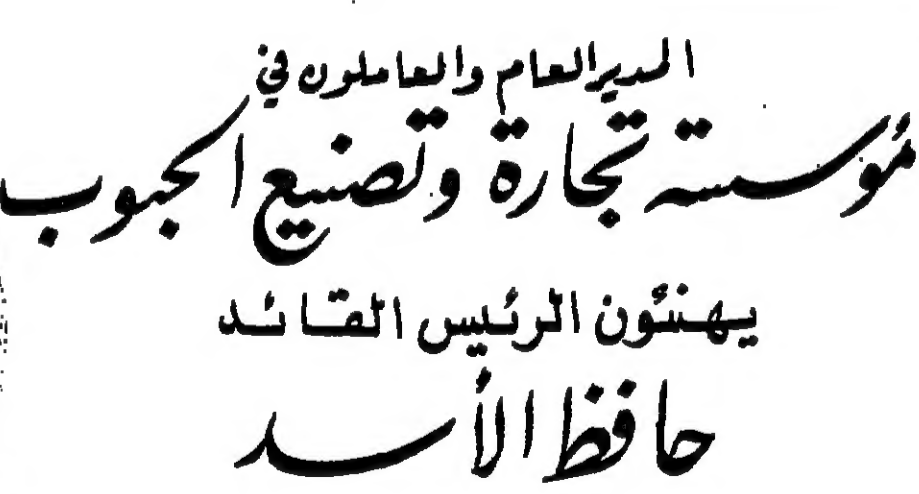 المدير العام والعاملون في
مؤسسة تجارة وتصنيع الحبوب
يهنئون الرئيس القائد
حافظ الأسد